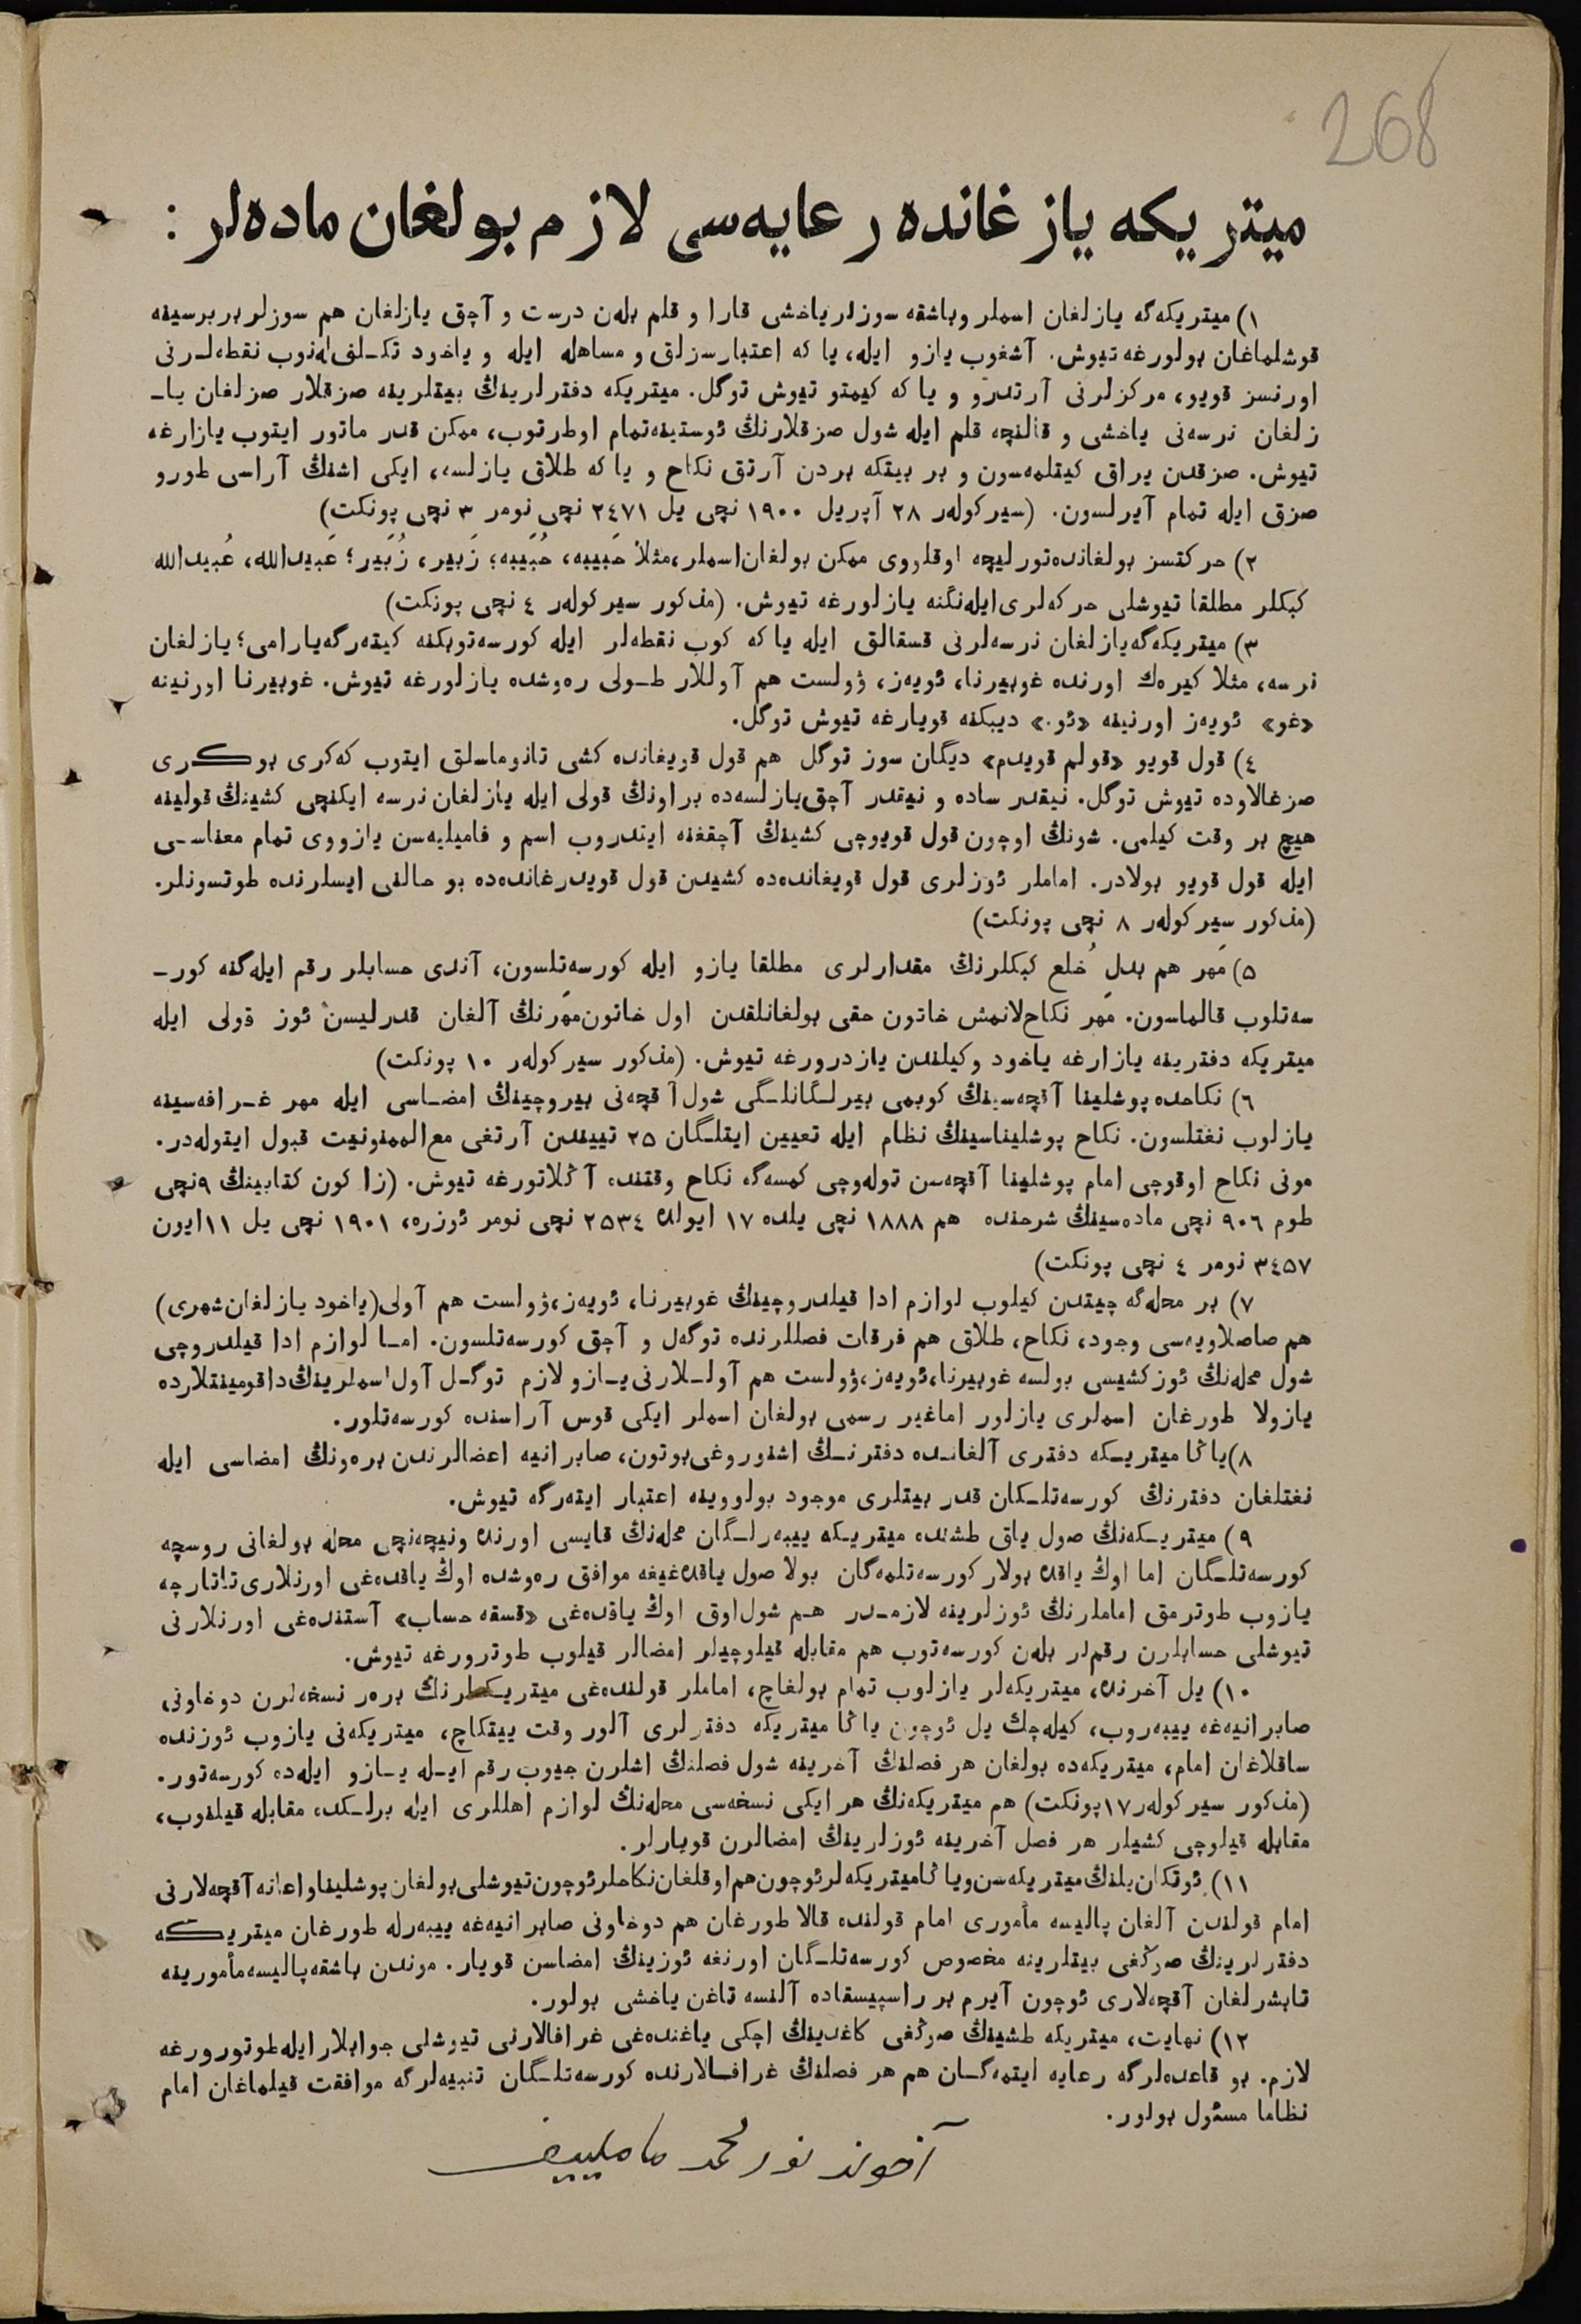 268
میتریکه یازغانده رعایه‌سی لازم بولغان ماده‌لر :
١) میتریکه‌گه یازلغان اسملر وباشقه سوزلر یاخشی قارا و قلم بله‌ن درست و آچق یازلغان هم سوزلر بربرسینه
قوشلماغان بولورغه تیوش. آشغوب یازو ایله، یا که اعتبارسزلق و مساهله ایله و یاخود تکـلف‌له‌نوب نقطه‌لـرنی
اورنسز قویو، مرکزلرنی آرتدرو و یا که کیمتو تیوش توگل. میتریکه دفترلرینڭ بیتلرینه صزقلار صزلغان یاـ
زلغان نرسه‌نی یاخشی و قالنچه قلم ایله شول صزقلارنڭ ئوستینه‌تمام اوطرتوب، ممکن قدر ماتور ایتوب یازارغه
تیوش. صزقدن یراق کیتلمه‌سون و بر بیتکه بردن آرتق نکاح و یا که طلاق یازلسه، ایکی اشنڭ آراسی طورو
صزق ایله تمام آیرلسون. (سیرکوله‌ر ٢٨ آپریل ١٩٠٠ نچی یل ٢٤٧١ نچی نومر ٣ نچی پونکت)
٢) حرکتسز بولغانده‌تورلیچه اوقلووی ممکن بولغان‌اسملر،مثلاً حَبیبه، حُبَیبه؛ زَبیر، زُبَیر؛ عَبیدالله، عُبیدالله
کبکلر مطلقا تیوشلی حرکه‌لری‌ایله‌نگنه یازلورغه تیوش. (مذکور سیرکوله‌ر ٤ نچی پونکت)
٣) میتریکه‌گه‌یازلغان نرسه‌لرنی قسقالق ایله یا که کوب نقطه‌لر ایله کورسه‌توبکنه کیته‌رگه‌یارامی؛ یازلغان
نرسه، مثلا کیره‌ك اورنده غوبیرنا، ئویه‌ز، ۋولست هم آوللار طـولی ره‌وشده یازلورغه تیوش. غوبیرنا اورنینه
«غو» ئویه‌ز اورنینه «ئو.» دیبکنه قویارغه تیوش توگل.
٤) قول قویو «قولم قویدم» دیگان سوز توگل هم قول قویغانده کشی تانوماسلق ایتوب که‌کری بوکری
صزغالاوده تیوش توگل. نیقدر ساده و نیقدر آچق‌یازلسه‌ده براونڭ قولی ایله یازلغان نرسه ایکنچی کشینڭ قولینه
هیچ بر وقت کیلمی. شونڭ اوچون قول قویوچی کشینڭ آچقغنه ایتدروب اسم و فامیلیه‌سن یازووی تمام معناسـی
ایله قول قویو بولادر. اماملر ئوزلری قول قویغانده‌ده کشیدن قول قویدرغانده‌ده بو حالنی ایسلرنده طوتسونلر.
(مذکور سیرکوله‌ر ٨ نچی پونکت)
٥) مَهر هم بدلِ خُلع کبکلرنڭ مقدارلری مطلقا یازو ایله کورسه‌تلسون، آندی حسابلر رقم ایله‌گنه کورـ
سه‌تلوب قالماسون. مهر نکاح‌لانمش خاتون حقی بولغانلقدن اول خاتون‌مهرنڭ آلغان قدرلیسن ئوز قولی ایله
میتریکه دفترینه یازارغه یاخود وکیلندن یازدرورغه تیوش. (مذکور سیرکوله‌ر ١٠ پونکت)
٦) نکاحده پوشلینا آقچه‌سینڭ کوبمی بیرلـگانلـگی شول آقچه‌نی بیروچینڭ امضـاسی ایله مهر غـرافه‌سینه
یازلوب نغتلسون. نکاح پوشلیناسینڭ نظام ایله تعیین ایتلـگان ٢٥ تییندن آرتغی مع‌الممنونیت قبول ایتوله‌در.
مونی نکاح اوقوچی امام پوشلینا آقچه‌سن توله‌وچی کمسه‌گه نکاح وقتنده آڭلاتورغه تیوش. (زاکون کتابینڭ ٩نچی
طوم ٩٠٦ نچی ماده‌سینڭ شرحنده هم ١٨٨٨ نچی یلده ١٧ ایولده ٢٥٣٤ نچی نومر ئوزره، ١٩٠١ نچی یل ١١ایون
٣٤٥٧ نومر ٤ نچی پونکت)
٧) بر محله‌گه چیتدن کیلوب لوازم ادا قیلدروچینڭ غوبیرنا، ئویه‌ز،ۋولست هم آولی(یاخود یازلغان‌شهری)
هم صاصلاویه‌سی وجود، نکاح، طلاق هم فرقات فصللرنده توگه‌ل و آچق کورسه‌تلسون. امـا لوازم ادا قیلدروچی
شول محله‌نڭ ئوزکشیسی بولسه غوبیرنا،ئویه‌ز،ۋولست هم آولـلارنی‌یـازو لازم توگـل آول‌اسملرینڭ‌داقومینتلارده
یازولا طورغان اسملری یازلور اماغیر رسمی بولغان اسملر ایکی قوس آراسنده کورسه‌تلور.
٨)یاڭا میتریـکه دفتری آلغانـده دفترنـڭ اشنوروغی‌بوتون، صابرانیه اعضالرندن بره‌ونڭ امضاسی ایله
نغتلغان دفترنڭ کورسه‌تلـکان قدر بیتلری موجود بولووینه اعتبار ایته‌رگه تیوش.
٩) میتریـکه‌نڭ صول یاق طشنده میتریـکه ییبه‌رلـگان محله‌نڭ قایسی اورنده ونیچه‌نچی محله بولغانی روسچه
کورسه‌تلـگان اما اوڭ یاقده بولار کورسه‌تلمه‌گان بولا صول یاقده‌غیغه موافق ره‌وشده اوڭ یاقده‌غی اورنلاری‌تاتارچه
یازوب طوترمق اماملرنڭ ئوزلرینه لازمـدر هـم شول‌اوق اوڭ یاقده‌غی «قسقه حساب» آستنده‌غی اورنلارنی
تیوشلی حسابلرن رقملر بله‌ن کورسه‌توب هم مقابله قیلوچیلر امضالر قیلوب طوترورغه تیوش.
١٠) یل آخرنده، میتریکه‌لر یازلوب تمام بولغاچ، اماملر قولنده‌غی میتریکه‌لرنڭ بره‌ر نسخه‌لرن دوخاونی
صابرانیه‌غه ییبه‌روب، کیله‌چك یل ئوچون یاڭا میتریکه دفترلری آلور وقت ییتکاچ، میتریکه‌نی یازوب ئوزنده
ساقلاغان امام، میتریکه‌ده بولغان هر فصلنڭ آخرینه شول فصلنڭ اشلرن جیوب رقم ایـله یـازو ایله‌ده کورسه‌تور.
(مذکور سیرکوله‌ر١٧پونکت) هم میتریکه‌نڭ هر ایکی نسخه‌سی محله‌نڭ لوازم اهللری ایله برلـکده مقابله قیلنوب،
مقابله قیلوچی کشیلر هر فصل آخرینه ئوزلرینڭ امضالرن قویارلر.
١١) ئوتکان‌یلنڭ‌میتریکه‌سن‌ویاڭامیتریکه‌لرئوچون‌هم‌اوقلغان‌نکاحلرئوچون‌تیوشلی‌بولغان‌پوشلیناواعانه‌آقچه‌لارنی
امام قولندن آلغان پالیسه مأموری امام قولنده قالا طورغان هم دوخاونی صابرانیه‌غه ییبه‌رله طورغان میتریکه
دفترلرینڭ صوڭغی بیتلرینه مخصوص کورسه‌تلـگان اورنغه ئوزینڭ امضاسن قویار. موندن باشقه‌پالیسه‌مأمورینه
تابشرلغان آقچه‌لاری ئوچون آیرم بر راسپیسقاده آلنسه تاغن یاخشی بولور.
١٢) نهایت، میتریکه طشینڭ صوڭغی کاغدینڭ اچکی یاغنده‌غی غرافالارنی تیوشلی جوابلار ایله‌طوتورورغه
لازم. بو قاعده‌لرگه رعایه ایتمه‌گـان هم هر فصلنڭ غرافـالارنده کورسه‌تلـگان تنبیه‌لرگه موافقت قیلماغان امام
نظاما مسئول بولور.
آخوند نورمحمد مامیلییف